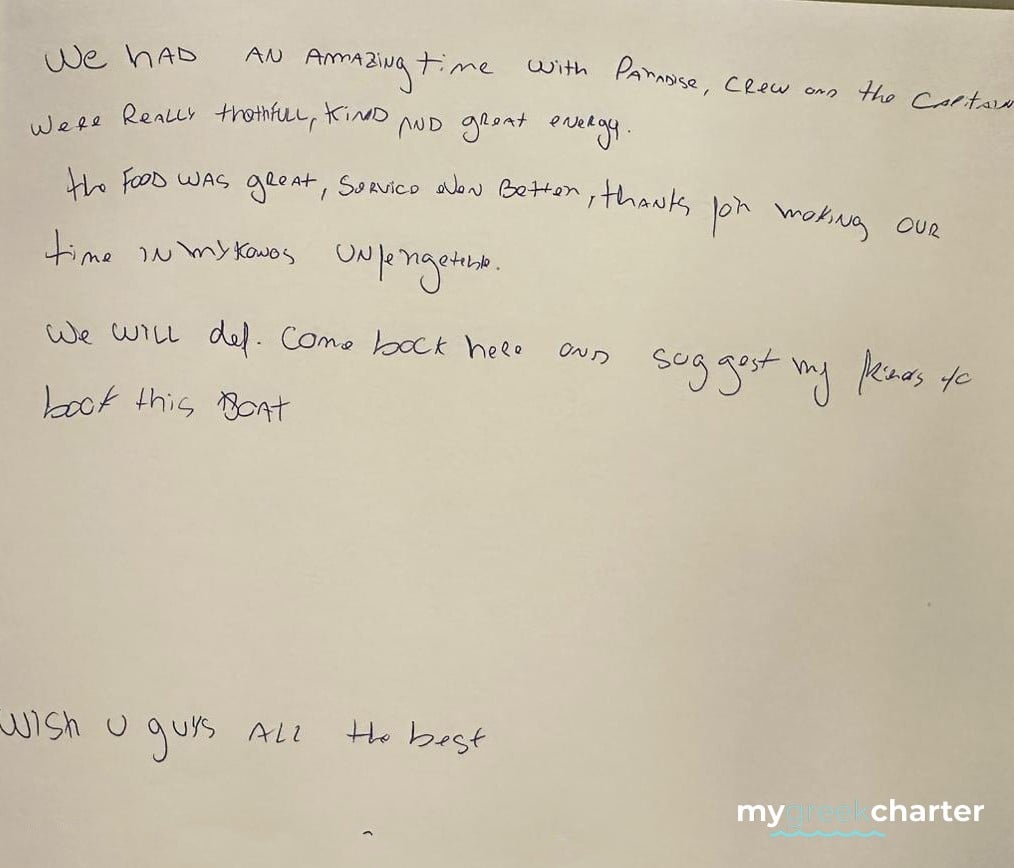 We had an amazing time with Paradise, crew and the Capitain
were really thothfull, kind and great energy.
the food was great, service even better, thanks for making our
time in mykonos unforgetable.
We will def. come back here and suggest my friends to
book this Boat
Wish u guys all the best
mygreekcharter